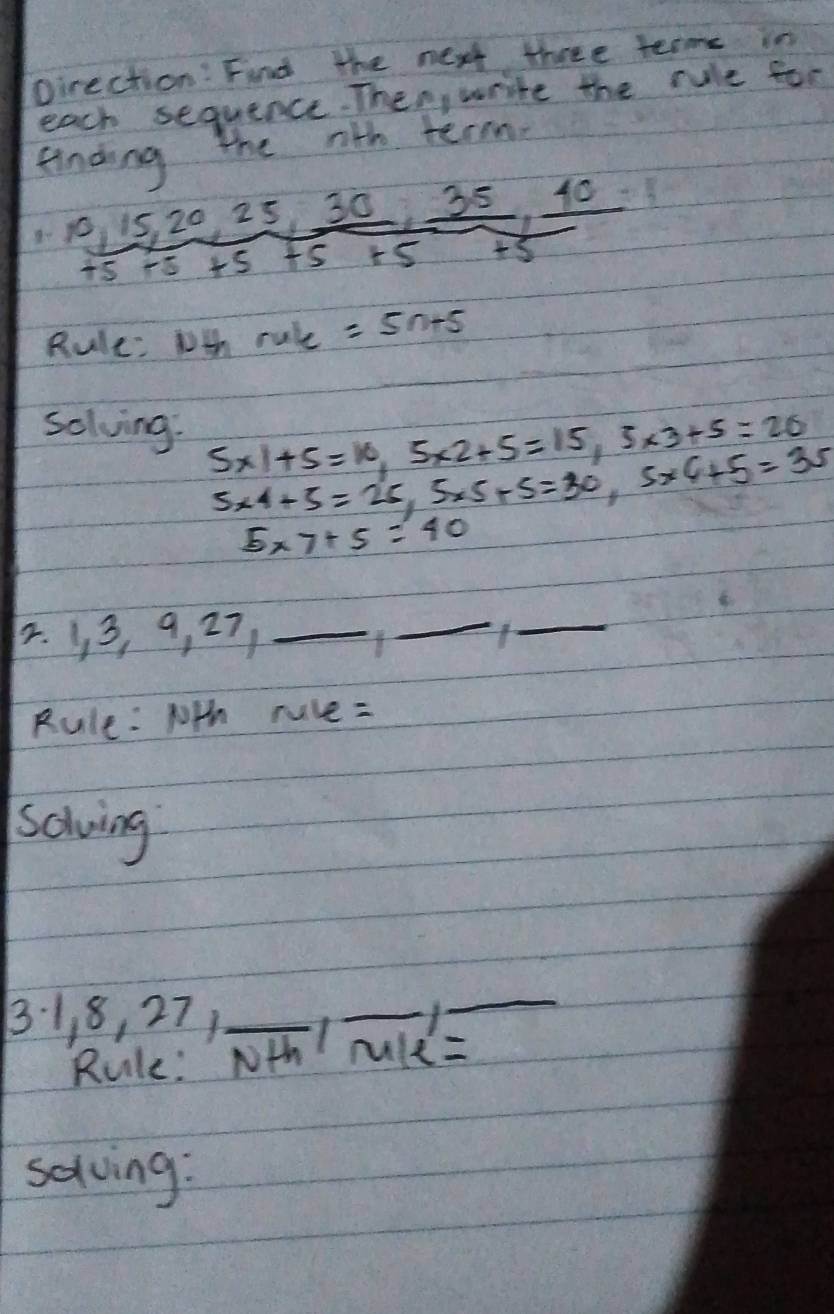 Direction: Find the next three terms in
each sequence. Then, write the rule for
finding the nth term.
1. 10, 15, 20, 25, 30, 35, 40
+5 +5 +5 +5 +5 +5
Rule: Nth rule = 5n+5
Solving:
5x1+5=10, 5x2+5=15, 5x3+5=20
5x4+5=25, 5x5+5=30, 5x6+5=35
5x7+5=40
2. 1, 3, 9, 27, ___, ___, ___
Rule: Nth rule =
Solving
3. 1, 8, 27, ___, ___, ___
Rule: Nth rule =
Solving: